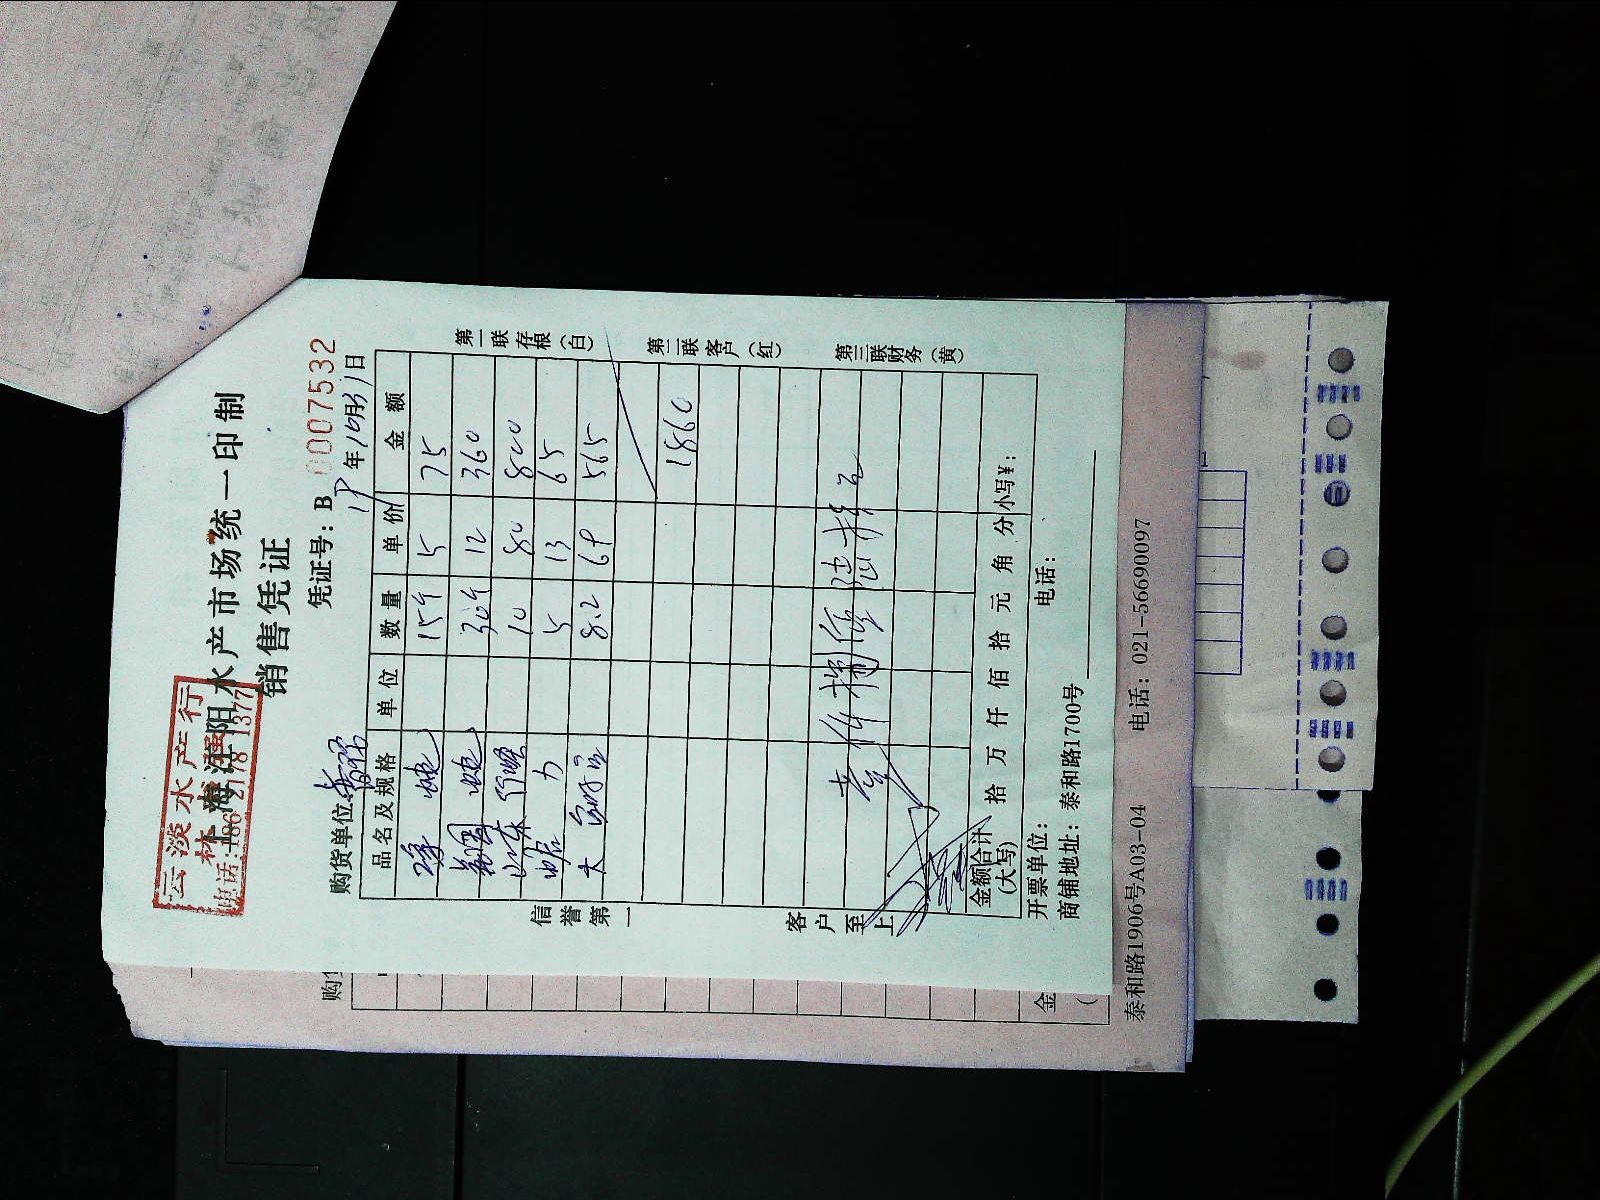 云淡水产行
林 强
电话:186 2178 1377
上海江阳水产市场统一印制
销售凭证
凭证号：B 0007532
购货单位:
年10月31日
品名及规格 单位 数量 单价 金额
15斤 5 75
30斤 12 360
山东 10 80 800
5 13 65
大 8.2 69 565
1860
壹仟捌佰陆拾元
金额合计(大写) 拾 万 仟 佰 拾 元 角 分 小写¥:
开票单位： 电话：
商铺地址：泰和路1700号
信誉第一
客户至上
第一联存根（白）
第二联客户（红）
第三联财务（黄）
购
金
泰和路1906号A03-04 电话：021-56690097